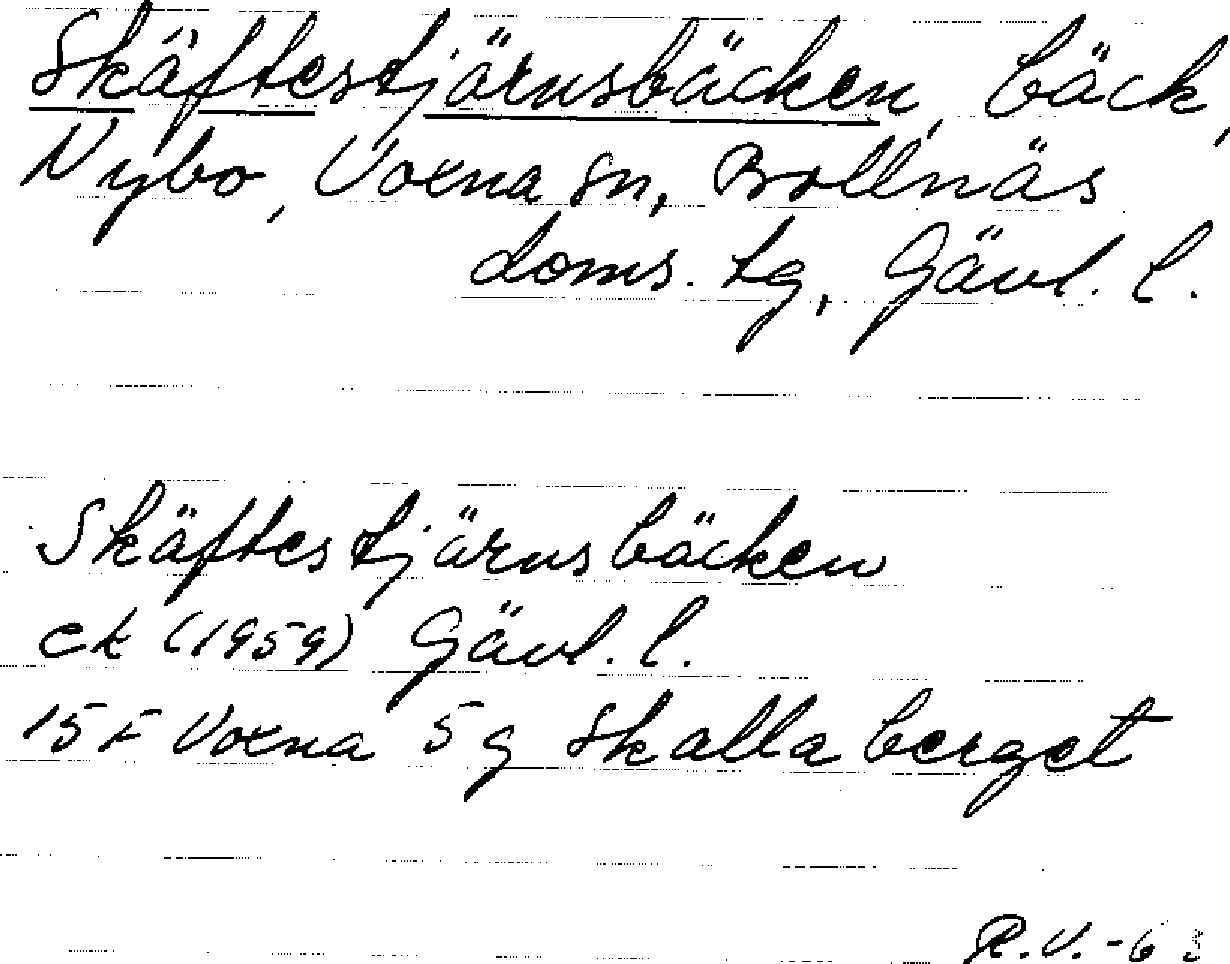 Skäftestjärnsbäcken, bäck,
Nybo, Voxna sn, Bollnäs
doms. tg, Gävl. l.
Skäftestjärnsbäcken
ek (1959) Gävl. l.
15 F Voxna 5 g Skallaberget
R.V. -63